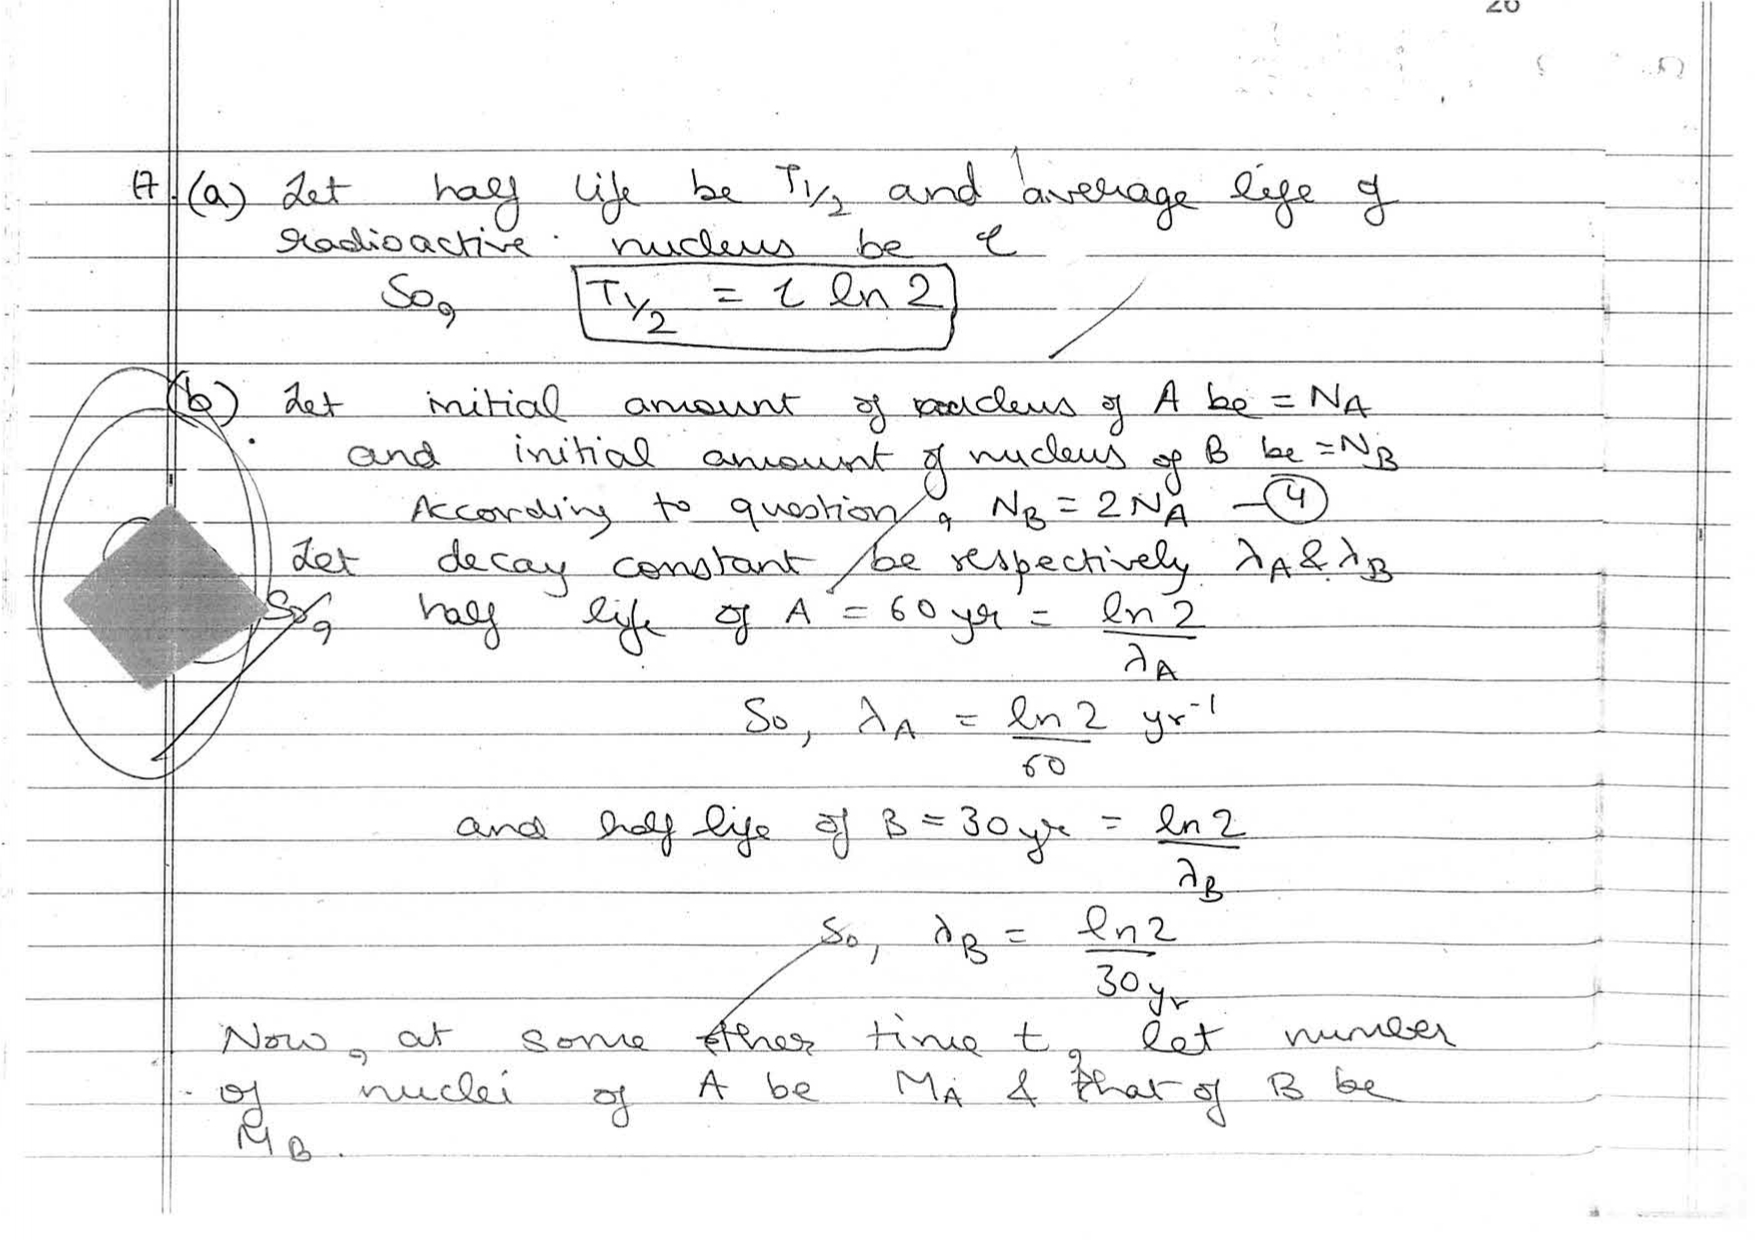 20
17. (a) Let half life be T1/2 and average life of
radioactive nucleus be τ
So, T1/2 = τ ln 2
(b) Let initial amount of nucleus of A be = NA
and initial amount of nucleus of B be = NB
According to question, NB = 2NA — (4)
Let decay constant be respectively λA & λB
So, half life of A = 60 yr = ln 2 / λA
So, λA = ln 2 / 60 yr⁻¹
and half life of B = 30 yr = ln 2 / λB
So, λB = ln 2 / 30 yr
Now, at some other time t, let number
of nuclei of A be MA & that of B be
MB.